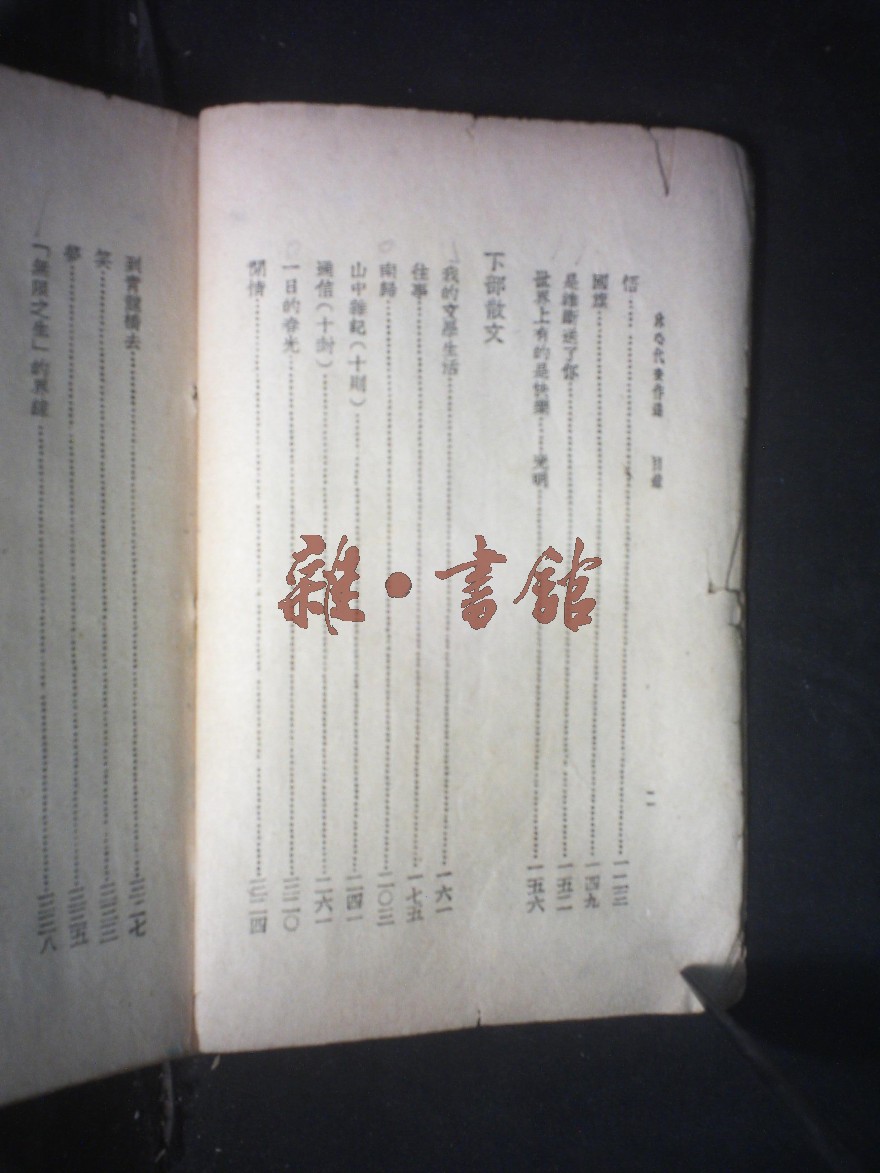 冰心代表作選 目錄 二
悟……一一三
國旗……一四九
是誰斷送了你……一五二
世界上有的是快樂……光明……一五六
下部散文
我的文學生活……一六一
往事……一七五
南歸……二〇三
山中雜記(十則)……二四一
通信(十封)……二六一
一日的春光……三二〇
閒情……三二四
到青龍橋去……三二七
笑
夢
「無限之生」的界線……三三八
雜·書館